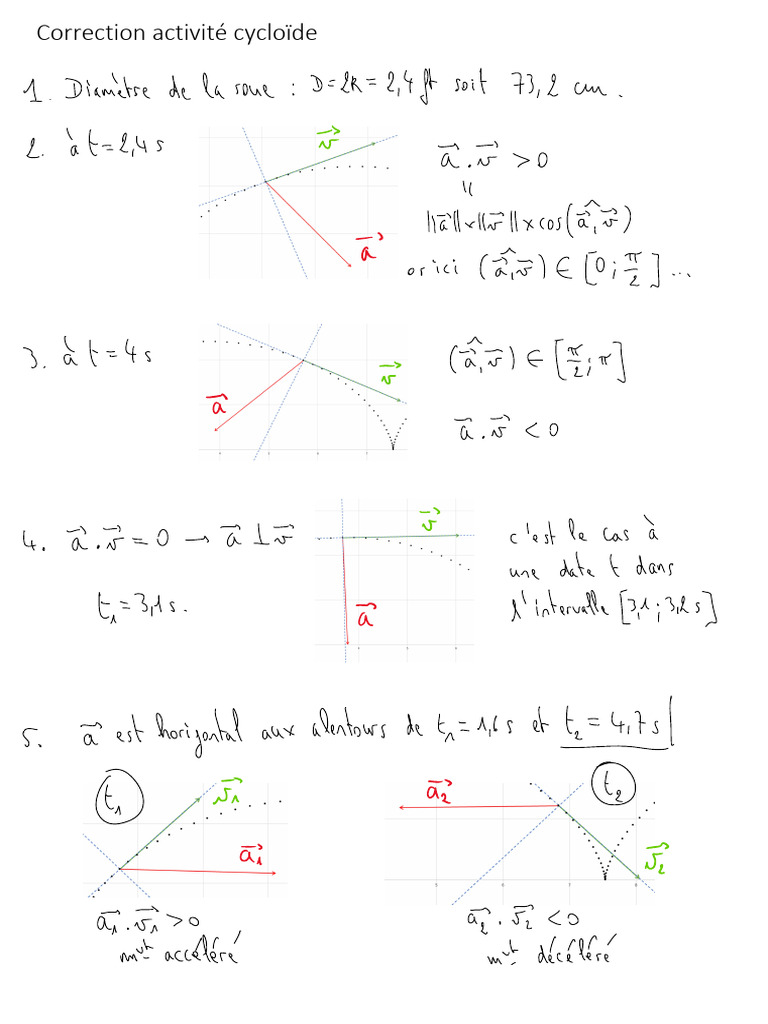 Correction activité cycloïde
1. Diamètre de la roue : D=2R=2,4 ft soit 73,2 cm.
2. à t=2,4 s
v⃗
a⃗
a⃗.v⃗ > 0
=
||a⃗||×||v⃗||×cos(a⃗,v⃗)
or ici (a⃗,v⃗) ∈ [0;π/2]...
3. à t=4 s
a⃗
v⃗
(a⃗,v⃗) ∈ [π/2;π]
a⃗.v⃗ < 0
4. a⃗.v⃗ = 0 → a⃗ ⊥ v⃗
t₁=3,1 s.
v⃗
a⃗
c'est le cas à
une date t dans
l'intervalle [3,1;3,2 s]
5. a⃗ est horizontal aux alentours de t₁=1,6 s et t₂=4,7 s
t₁
v₁⃗
a₁⃗
a₁⃗.v₁⃗ > 0
mvt accéléré
a₂⃗
t₂
v₂⃗
a₂⃗.v₂⃗ < 0
mvt décéléré